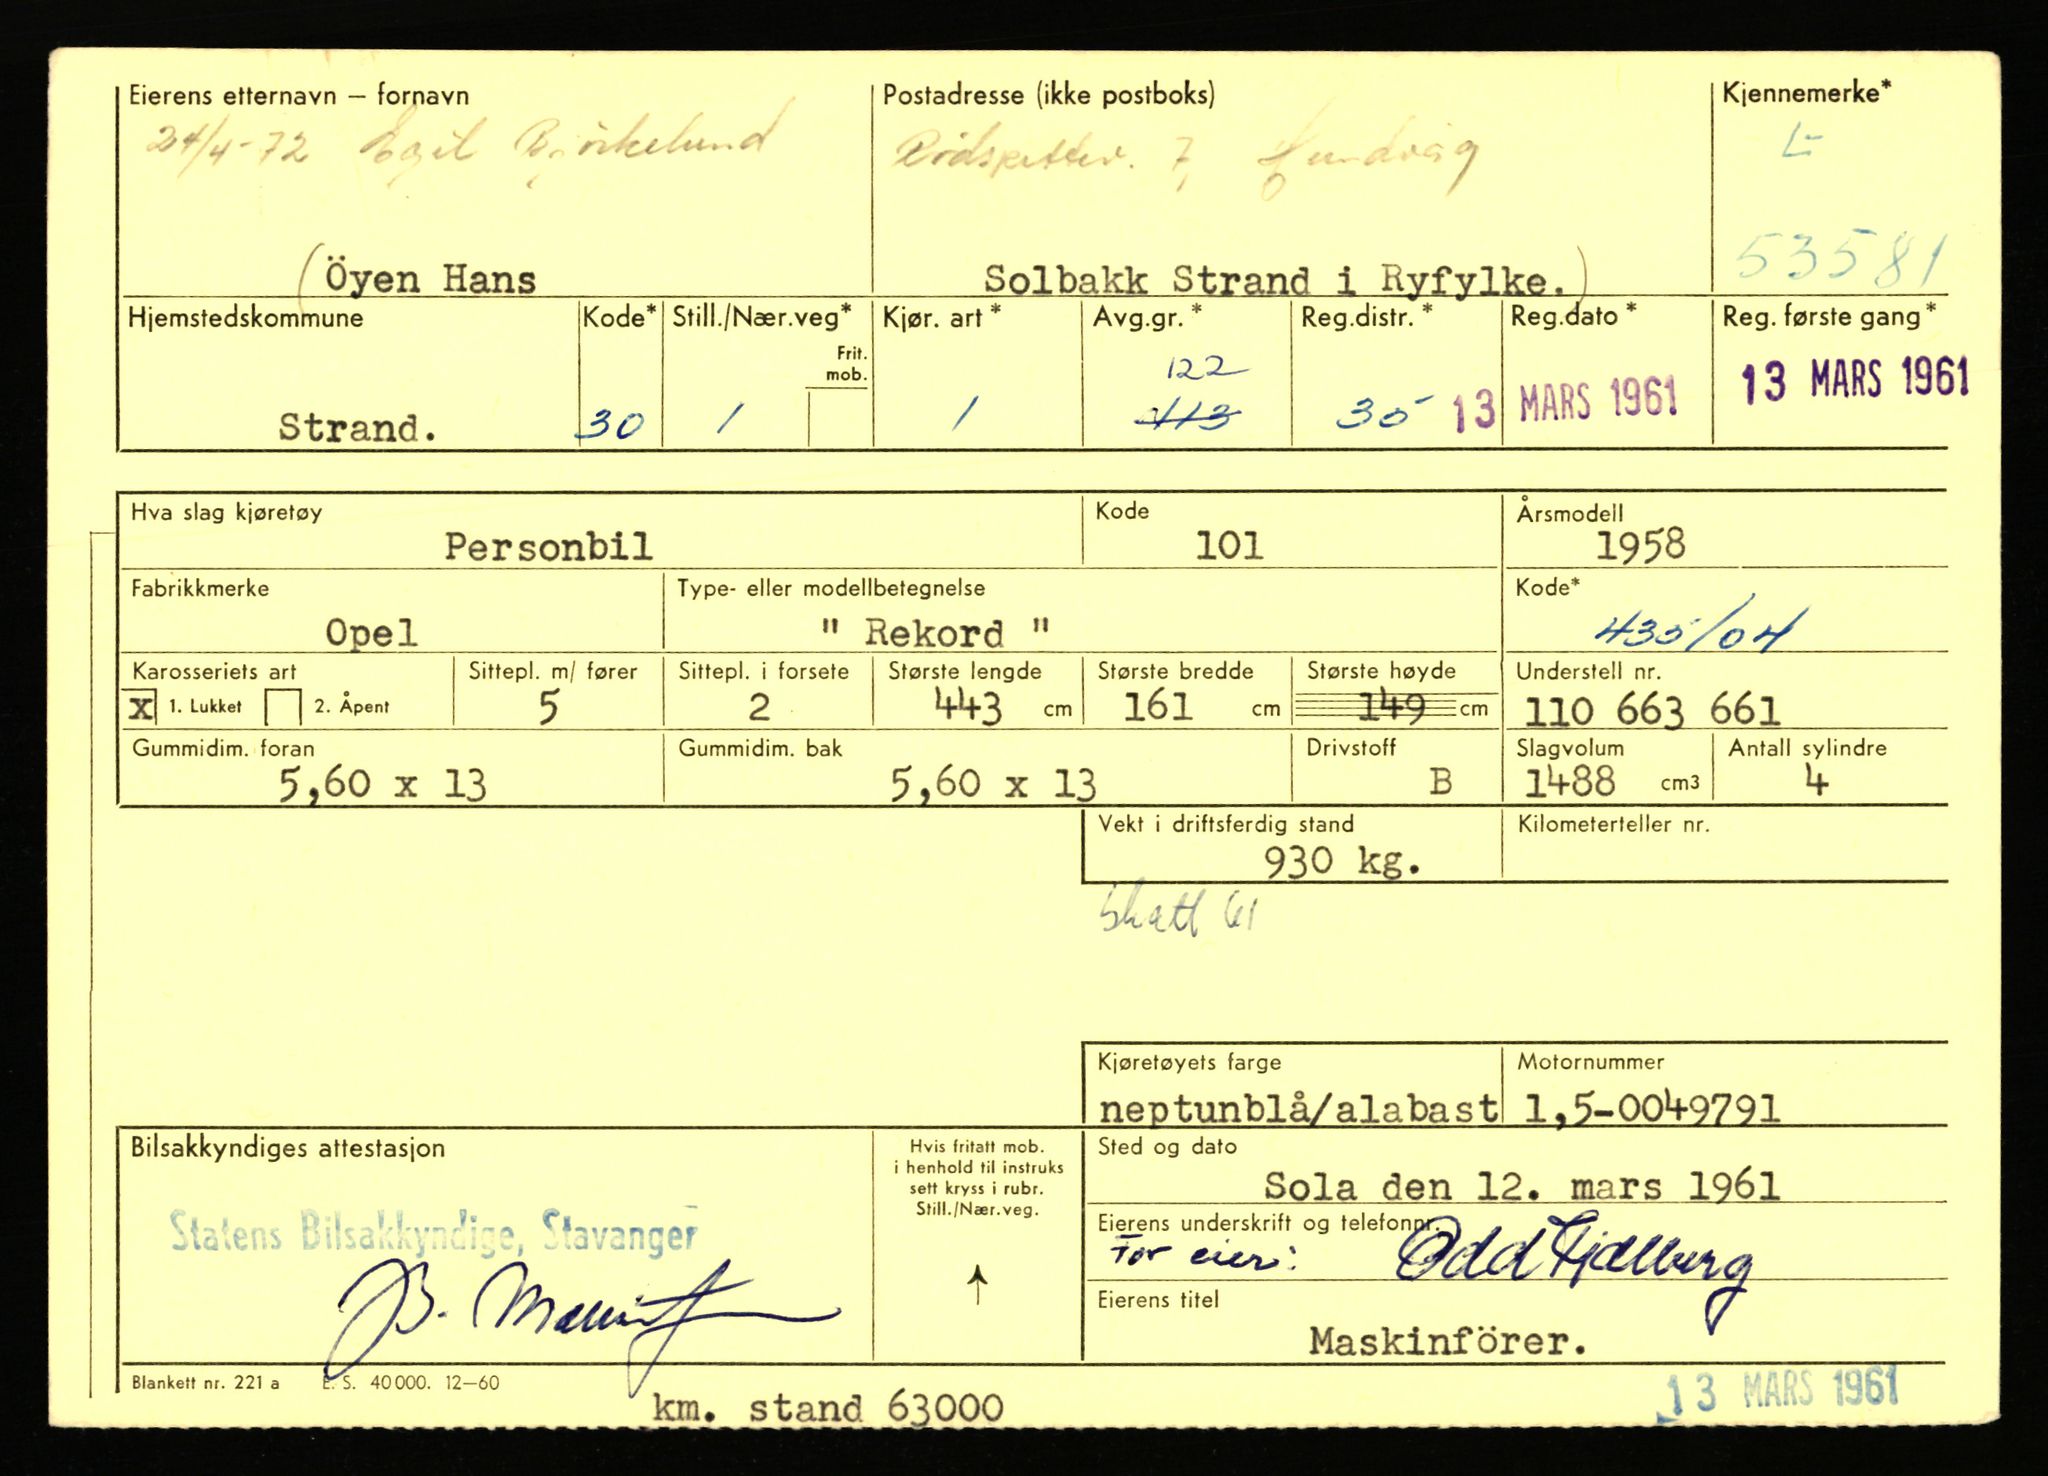 Eierens etternavn – fornavn Postadresse (ikke postboks) Kjennemerke*
24/4-72 Egil Bjørkelund Rødspettev. 7, Hundvåg L-
53581
(Öyen Hans Solbakk Strand i Ryfylke.)
Hjemstedskommune Kode* Still./Nær.veg* Kjør. art * Avg.gr. * Reg.distr. * Reg.dato * Reg. første gang *
Frit. mob.
122
Strand. 30 1 1 113 35 13 MARS 1961 13 MARS 1961
Hva slag kjøretøy Kode Årsmodell
Personbil 101 1958
Fabrikkmerke Type- eller modellbetegnelse Kode*
Opel " Rekord " 435/04
Karosseriets art Sittepl. m/ fører Sittepl. i forsete Største lengde Største bredde Største høyde Understell nr.
x 1. Lukket 2. Åpent 5 2 443 cm 161 cm 149 cm 110 663 661
Gummidim. foran Gummidim. bak Drivstoff Slagvolum Antall sylindre
5,60 x 13 5,60 x 13 B 1488 cm3 4
Vekt i driftsferdig stand Kilometerteller nr.
930 kg.
Skatt 61
Kjøretøyets farge Motornummer
neptunblå/alabast 1,5-0049791
Bilsakkyndiges attestasjon Hvis fritatt mob. i henhold til instruks sett kryss i rubr. Still./Nær.veg. Sted og dato
Sola den 12. mars 1961
Statens Bilsakkyndige, Stavanger
Eierens underskrift og telefonnr.
For eier: Odd Fjelberg
Eierens titel
Maskinförer.
Blankett nr. 221 a E. S. 40 000. 12–60
km. stand 63000 13 MARS 1961